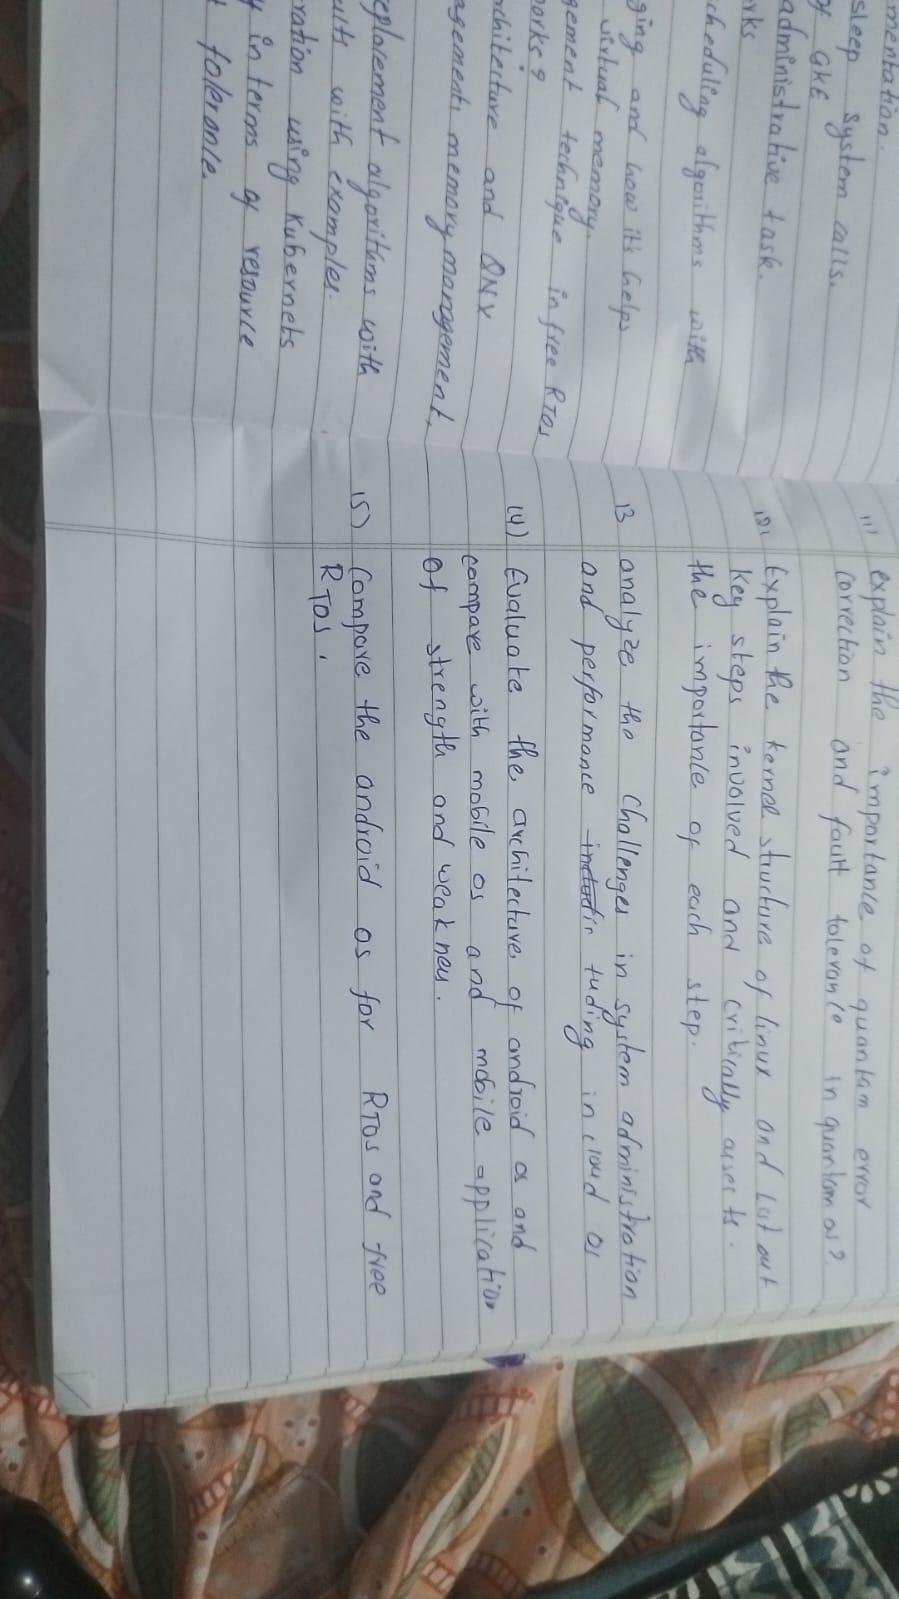 mentation.
sleep system calls.
of GKE
administrative task.
rks
cheduling algorithms with
ging and how it's helps
virtual memory.
gement technique in free RTOS
orks?
rchitecture and QNX
agements memory management,
eplacement algorithms with
ults with examples.
ration using Kubernets
y in terms of resource
t tolerance.
11) explain the importance of quantam error
correction and fault tolerance in quantam os?
12) Explain the kernel structure of linux and List out
Key steps involved and critically assects.
the importance of each step.
13 analyze the challenges in system administration
and performance in tuding in cloud os
14) Evaluate the architecture of android os and
compare with mobile os and mobile application
of strength and weakness.
15) Compare the android os for RTOS and free
RTOS.